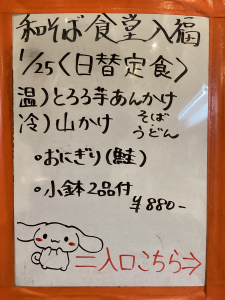 和そば食堂入福
1/25〈日替定食〉
温)とろろ芋あんかけ
冷)山かけ そば うどん
•おにぎり(鮭)
•小鉢2品付
¥880-
=入口こちら⇒